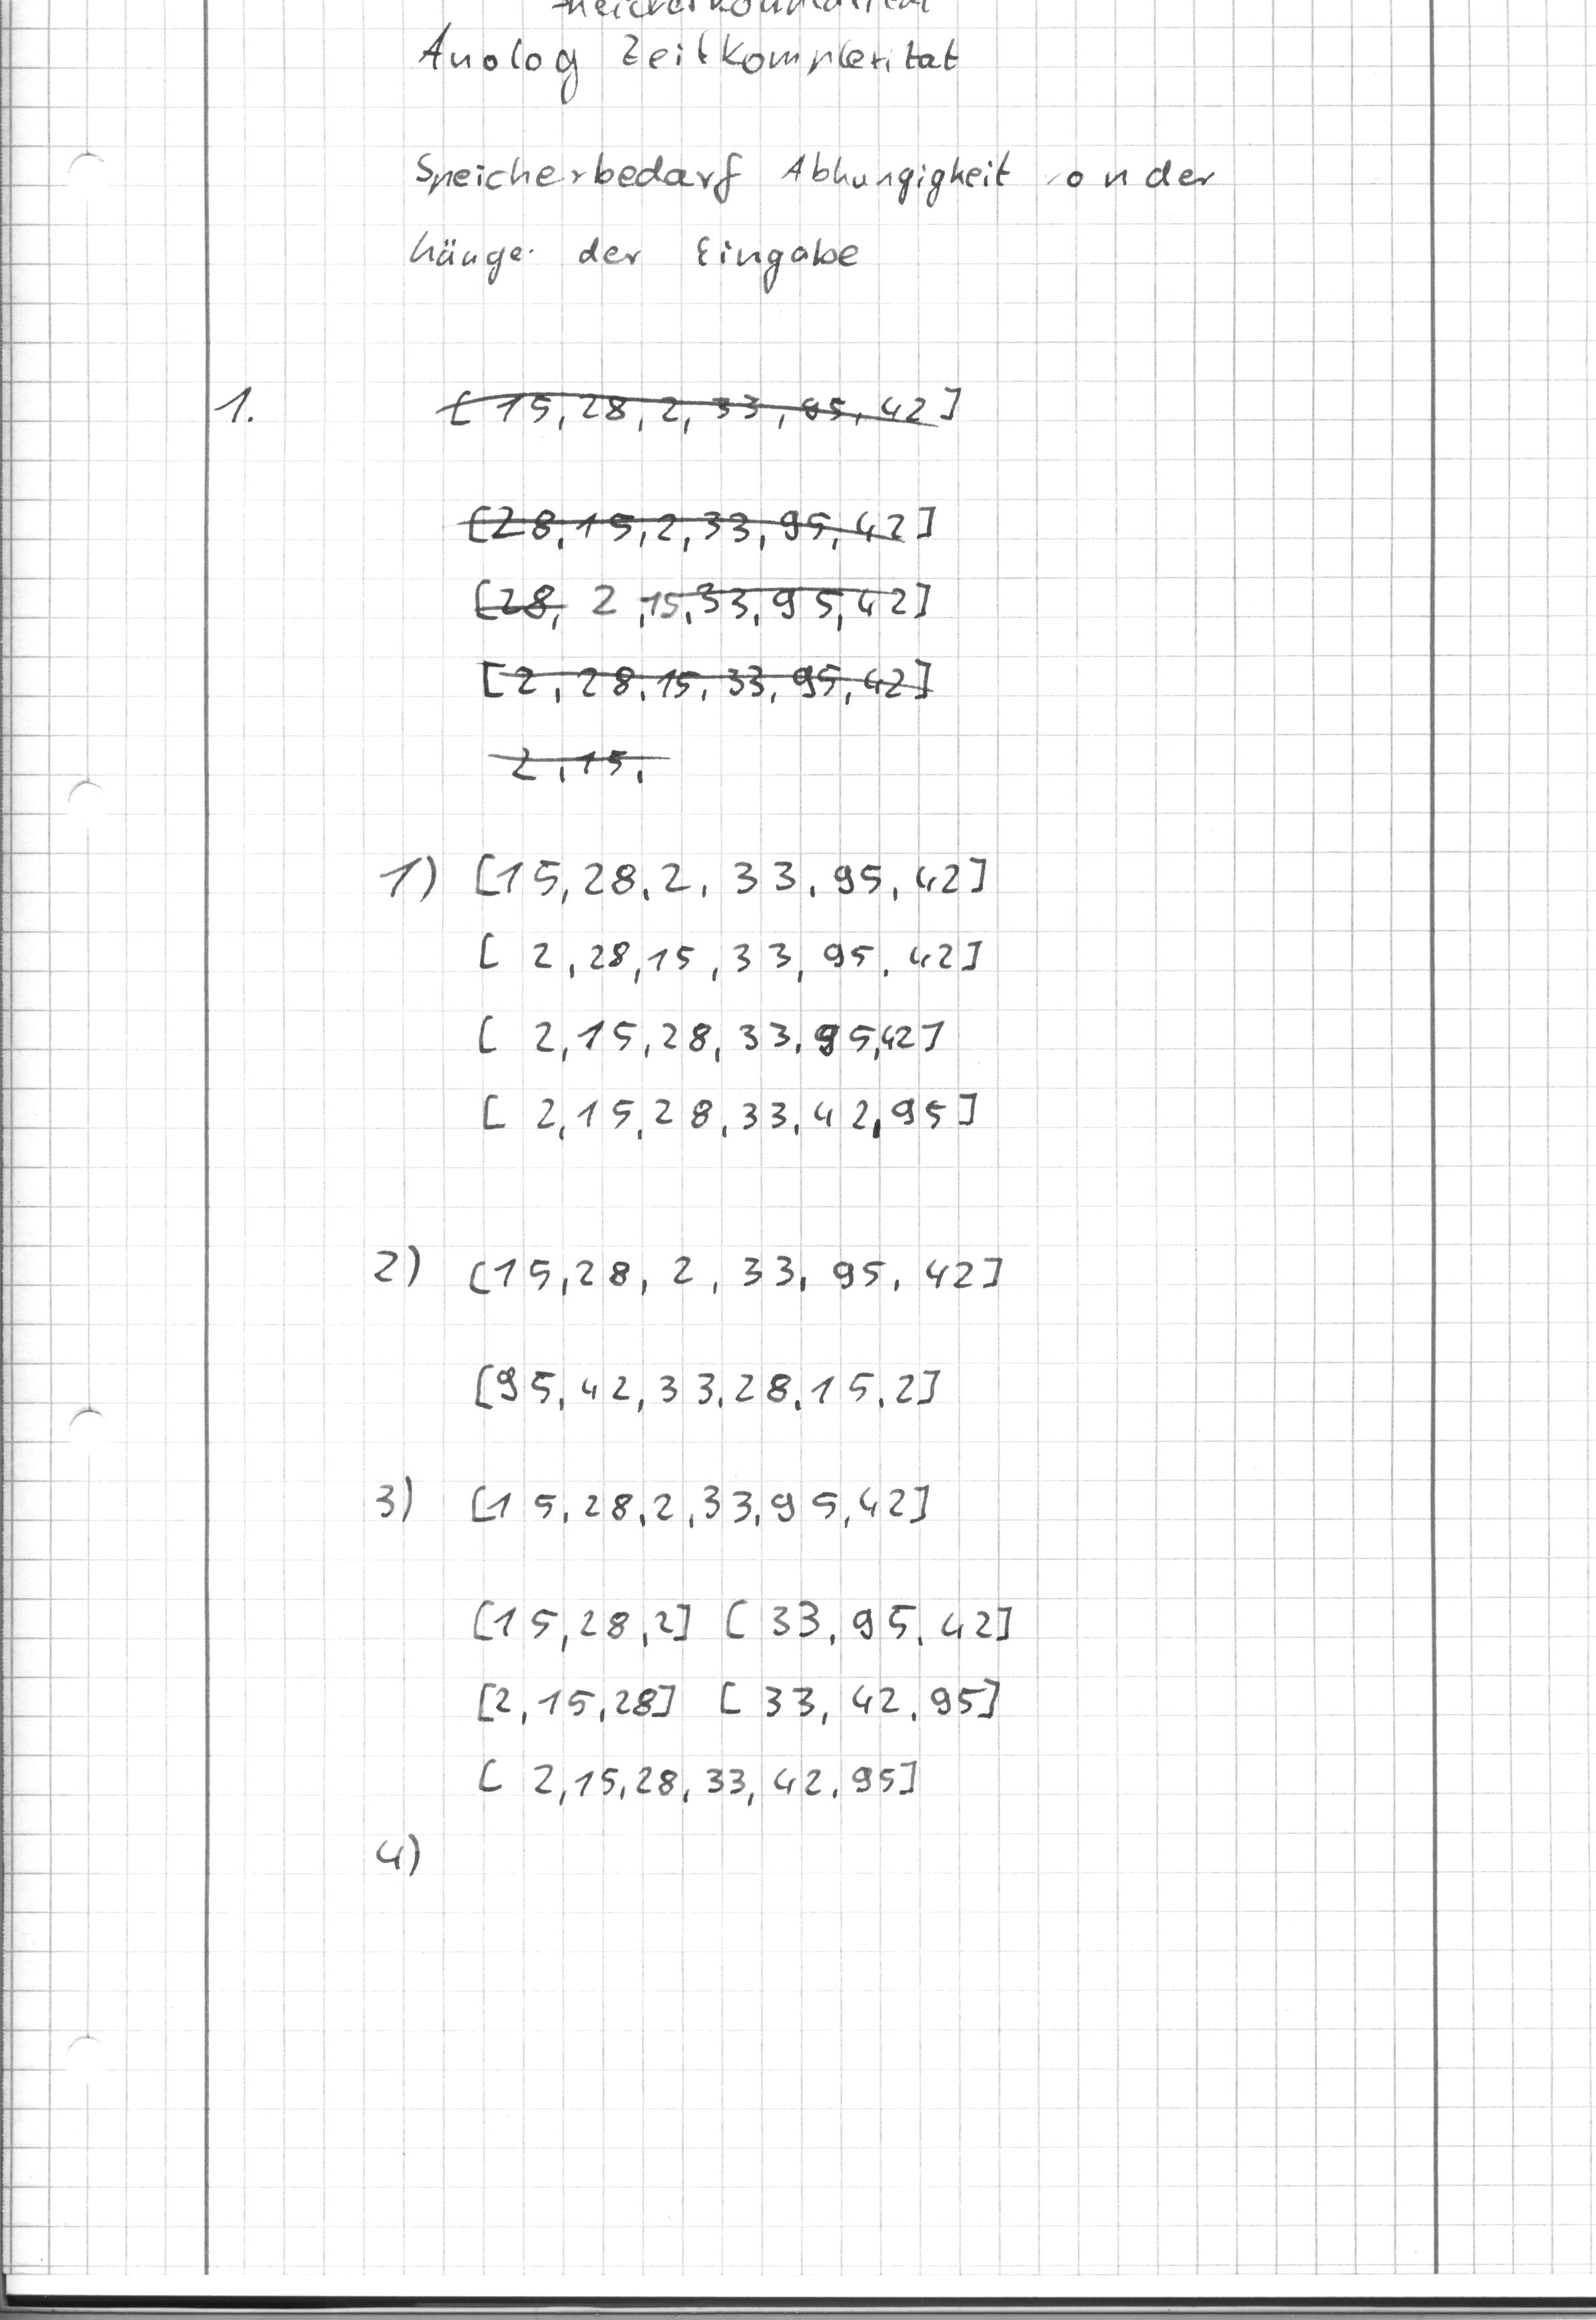 Analog Zeitkomplexitat
Speicherbedarf Abhungigkeit von der
Länge der Eingabe
1. [15,28,2,33,95,42]
[28,15,2,33,95,42]
[28, 2,15,33,95,42]
[2,28,15,33,95,42]
2,15,
1) [15,28,2,33,95,42]
[2,28,15,33,95,42]
[2,15,28,33,95,42]
[2,15,28,33,42,95]
2) [15,28,2,33,95,42]
[95,42,33,28,15,2]
3) [15,28,2,33,95,42]
[15,28,2] [33,95,42]
[2,15,28] [33,42,95]
[2,15,28,33,42,95]
4)